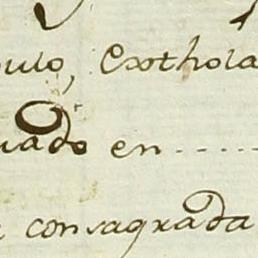 ulo, Exthola
uado en ......
consagrada